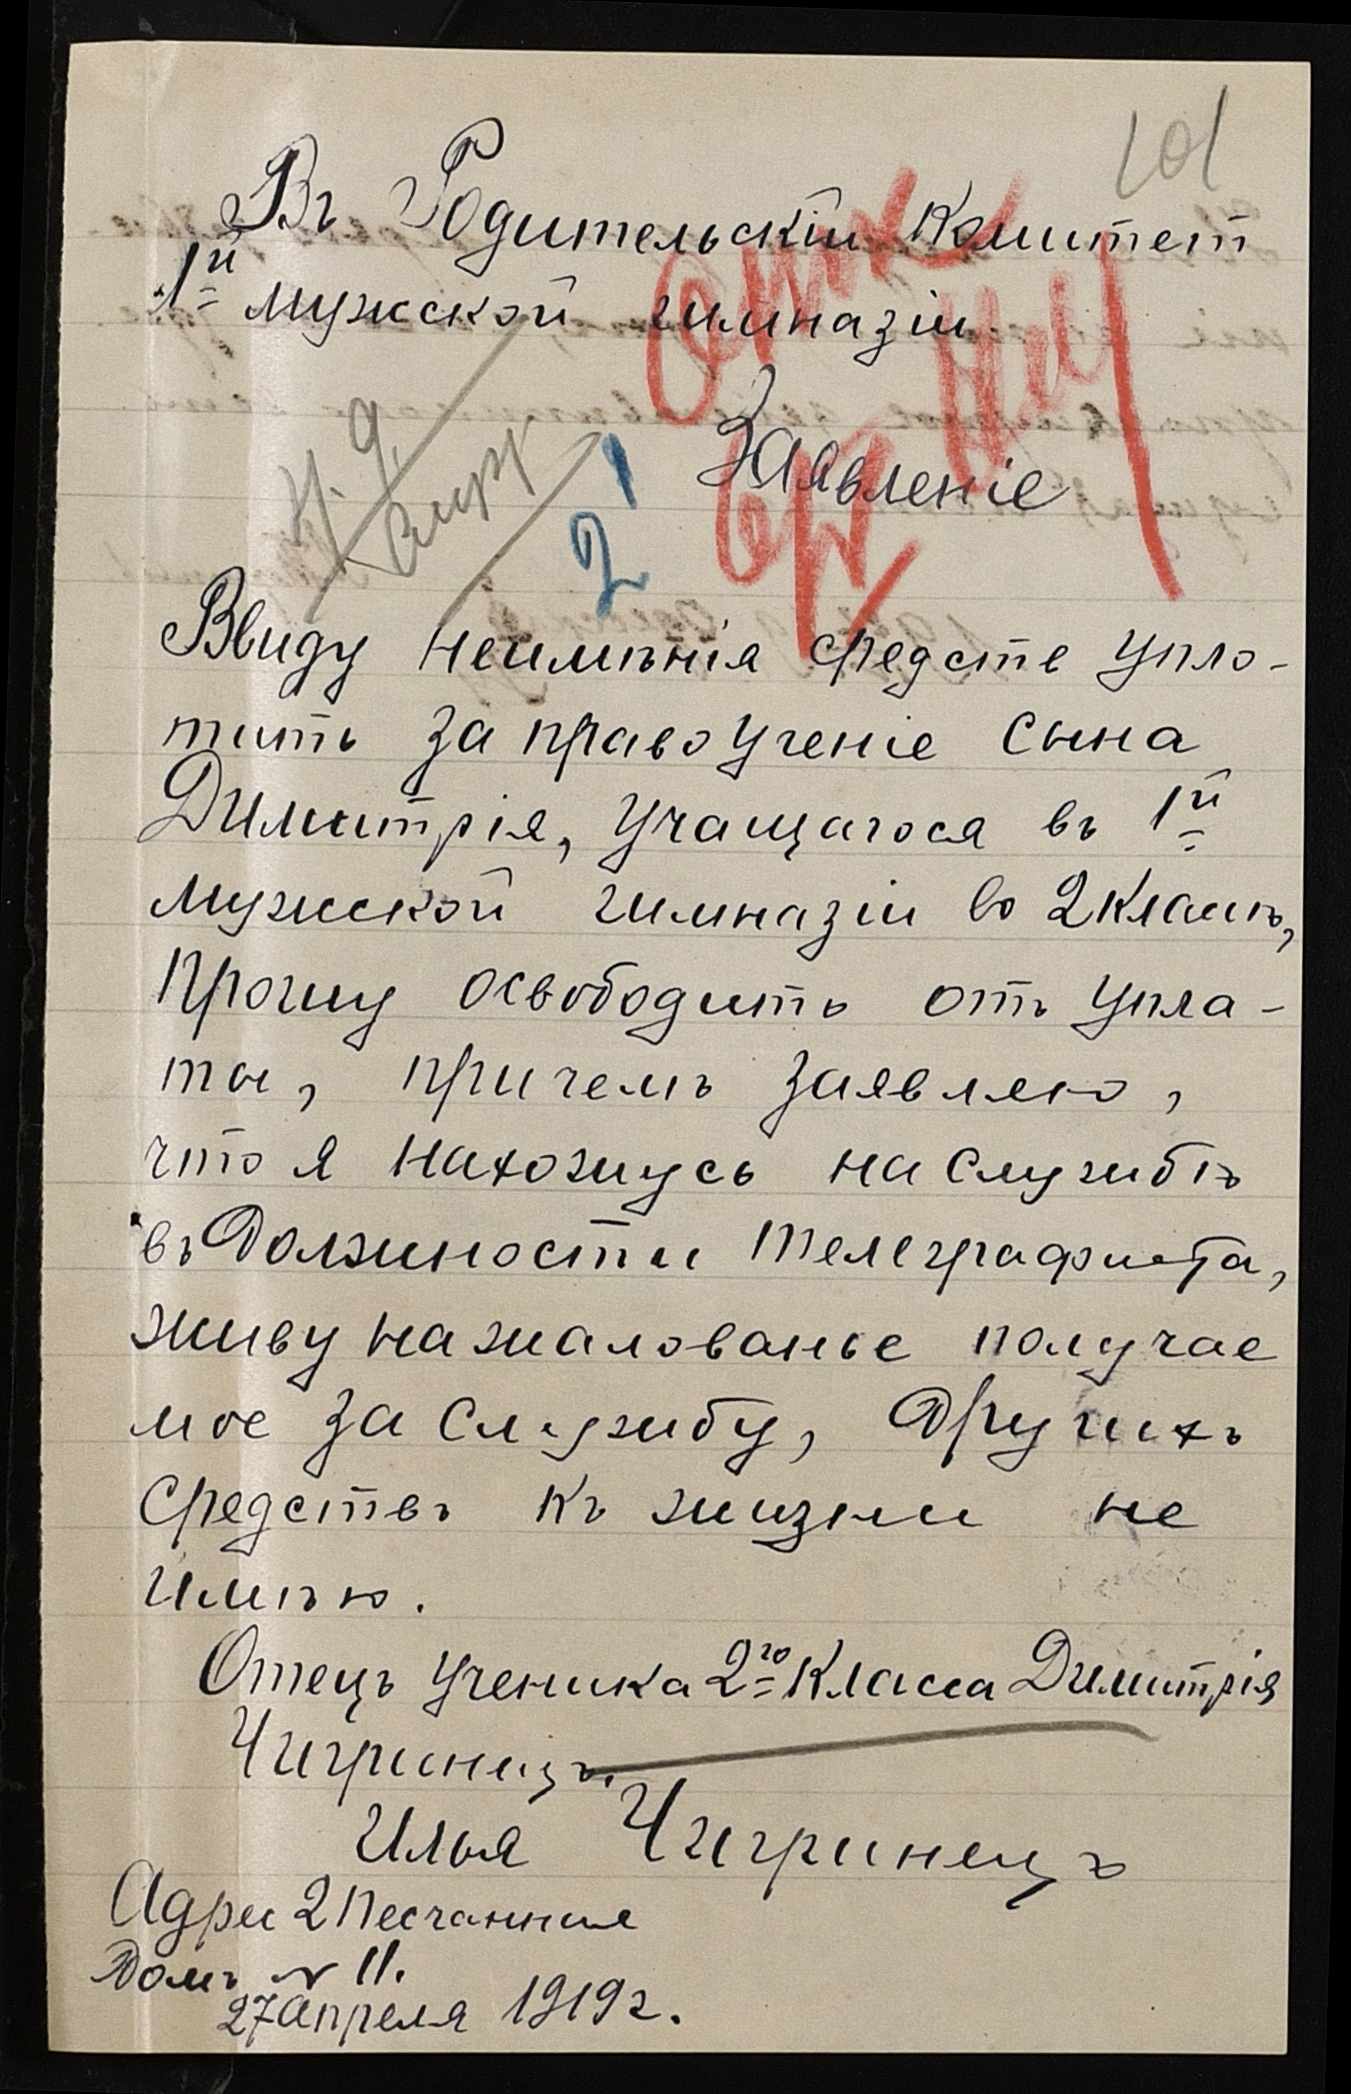 101
Въ Родительскій Комитет
1й мужской гимназіи
Заявленіе
2
Ввиду неимѣнія средств упло-
тить за право ученіе сына
Димитрія, учащагося въ 1й
мужской гимназіи во 2 классѣ,
прошу освободить отъ упла-
ты, причемъ заявляю,
что я нахожусь на службѣ
въ должности телеграфиста,
живу на жалованье получае
мое за службу, другихъ
средствъ къ жизни не
имѣю.
Отецъ ученика 2го класса Димитрія
Чигринецъ.
Илья Чигринецъ
Адрес 2 Песчанная
Домъ № 11.
27 апреля 1919 г.